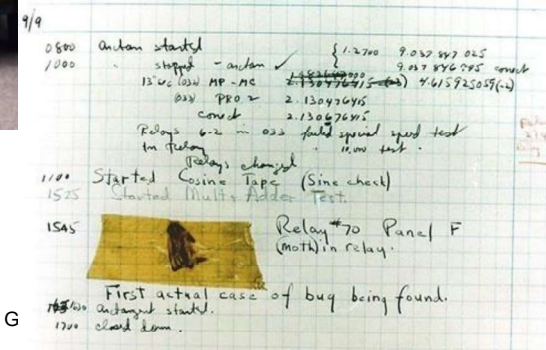 9/9
0800 antan started { 1.2700 9.037 847 025
1000 " stopped - antan ✓ 9.037 846 795 conect
13"uc (032) MP-MC 2.130476415 4.615925059(-2)
(033) PRO 2 2.130476415
conect 2.130676415
Relays 6-2 in 033 failed special speed test
in relay " 10.000 test.
Relays changed
1100 Started Cosine Tape (Sine check)
1525 Started Mult + Adder Test.
1545 Relay #70 Panel F
(moth) in relay.
First actual case of bug being found.
1630 antangent started.
1700 closed down.
G